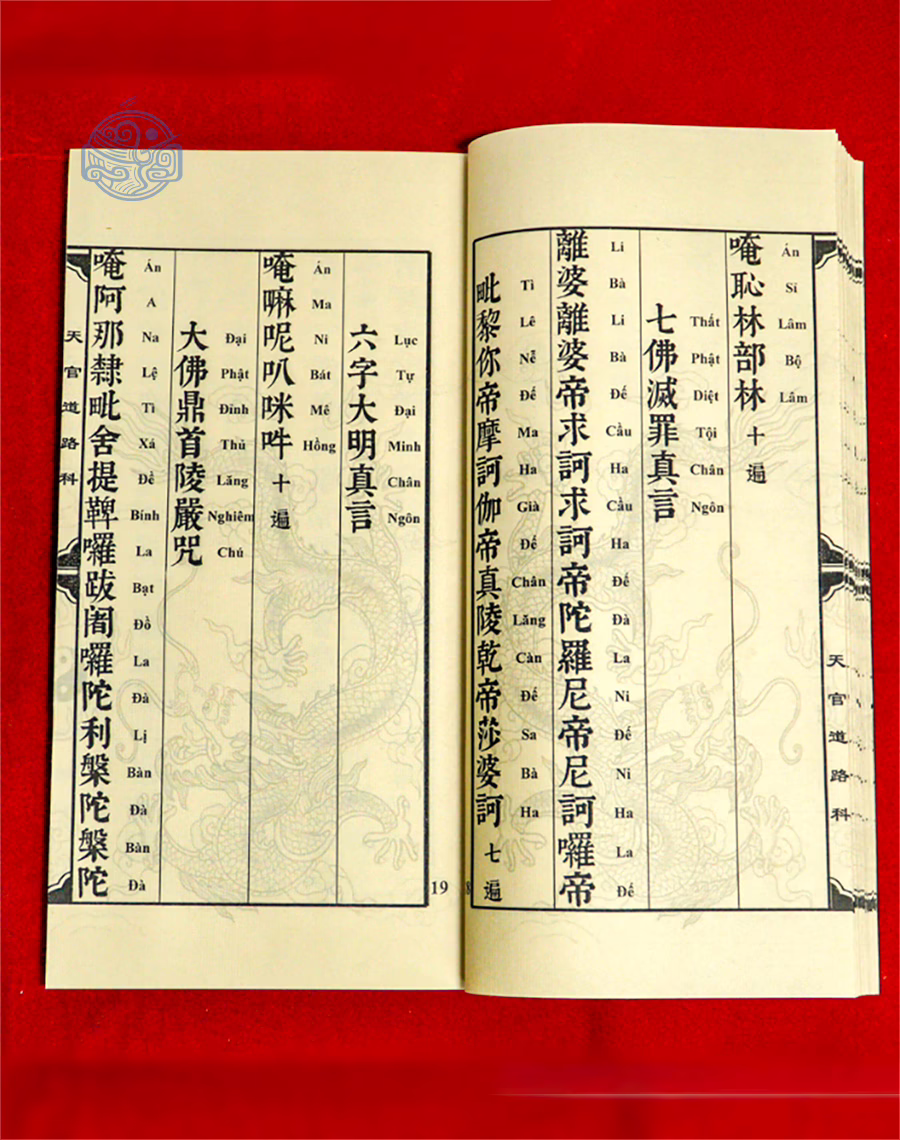 天官道路科
Án Sỉ Lâm Bộ Lâm
唵恥林部林十遍
Thất Phật Diệt Tội Chân Ngôn
七佛滅罪真言
Li Bà Li Bà Đế Cầu Ha Cầu Ha Đế Đà La Ni Đế Ni Ha La Đế
離婆離婆帝求訶求訶帝陀羅尼帝尼訶囉帝
Tì Lê Nễ Đế Ma Ha Già Đế Chân Lăng Càn Đế Sa Bà Ha
毗黎你帝摩訶伽帝真陵乾帝莎婆訶七遍
8
19
Lục Tự Đại Minh Chân Ngôn
六字大明真言
Án Ma Ni Bát Mê Hồng
唵嘛呢叭咪吽十遍
Đại Phật Đỉnh Thủ Lăng Nghiêm Chú
大佛鼎首陵嚴咒
Án A Na Lệ Tì Xá Đề Bính La Bạt Đồ La Đà Lị Bàn Đà Bàn Đà
唵阿那隸毗舍提鞞囉跋闍囉陀利槃陀槃陀
天官道路科